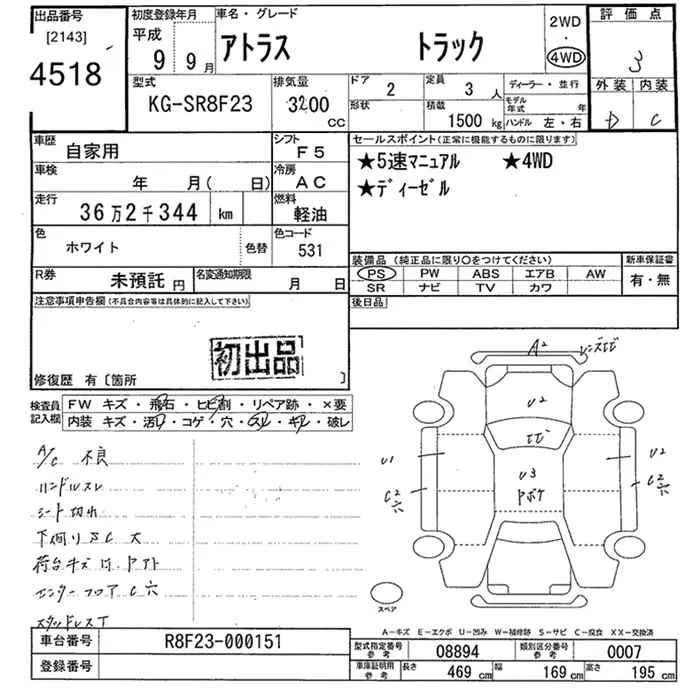 出品番号 初度登録年月 車名・グレード 2WD 評価点
[2143] 平成 アトラス トラック ・ 3
4518 9年 9月 4WD 外装 内装
D C
型式 排気量 ドア 定員 ディーラー・並行
KG-SR8F23 3200 CC 2 3人 モデル年式 年
形状 積載 1500kg ハンドル 左・右
車歴 シフト セールスポイント(正常に機能するものに限ります)
自家用 F5 ★5速マニュアル ★4WD
車検 年 月( 日) 冷房 AC ★ディーゼル
走行 36万2千344 km 燃料 軽油
色 ホワイト 色替 色コード 531
装備品 (純正品に限り○をつけてください) 新車保証書
PS PW ABS エアB AW 有・無
SR ナビ TV カワ
R券 未預託 円 名変通知期限 月 日
後日品
注意事項申告欄(不具合内容等は具体的に記入して下さい)
初出品
修復歴 有〔箇所 〕
検査員記入欄 FW キズ・飛石・ヒビ割・リペア跡・×要
内装 キズ・汚レ・コゲ・穴・スレ・キレ・破レ
A/C 不良
ハンドルスレ
シート切れ
下回りSC大
荷台キズ凹、アオト
センターフロアC穴
スタッドレスT
A2
レンズヒビ
U2
ヒビ
U3
ヤボケ
U1
C2穴
U2
C2穴
スペア
A-キズ E-エクボ U-凹み W-補修跡 S-サビ C-腐食 XX-交換済
車台番号 R8F23-000151
登録番号
型式指定番号 参考 08894 類別区分番号 参考 0007
車庫証明用 参考 長さ 469cm 幅 169cm 高さ 195cm